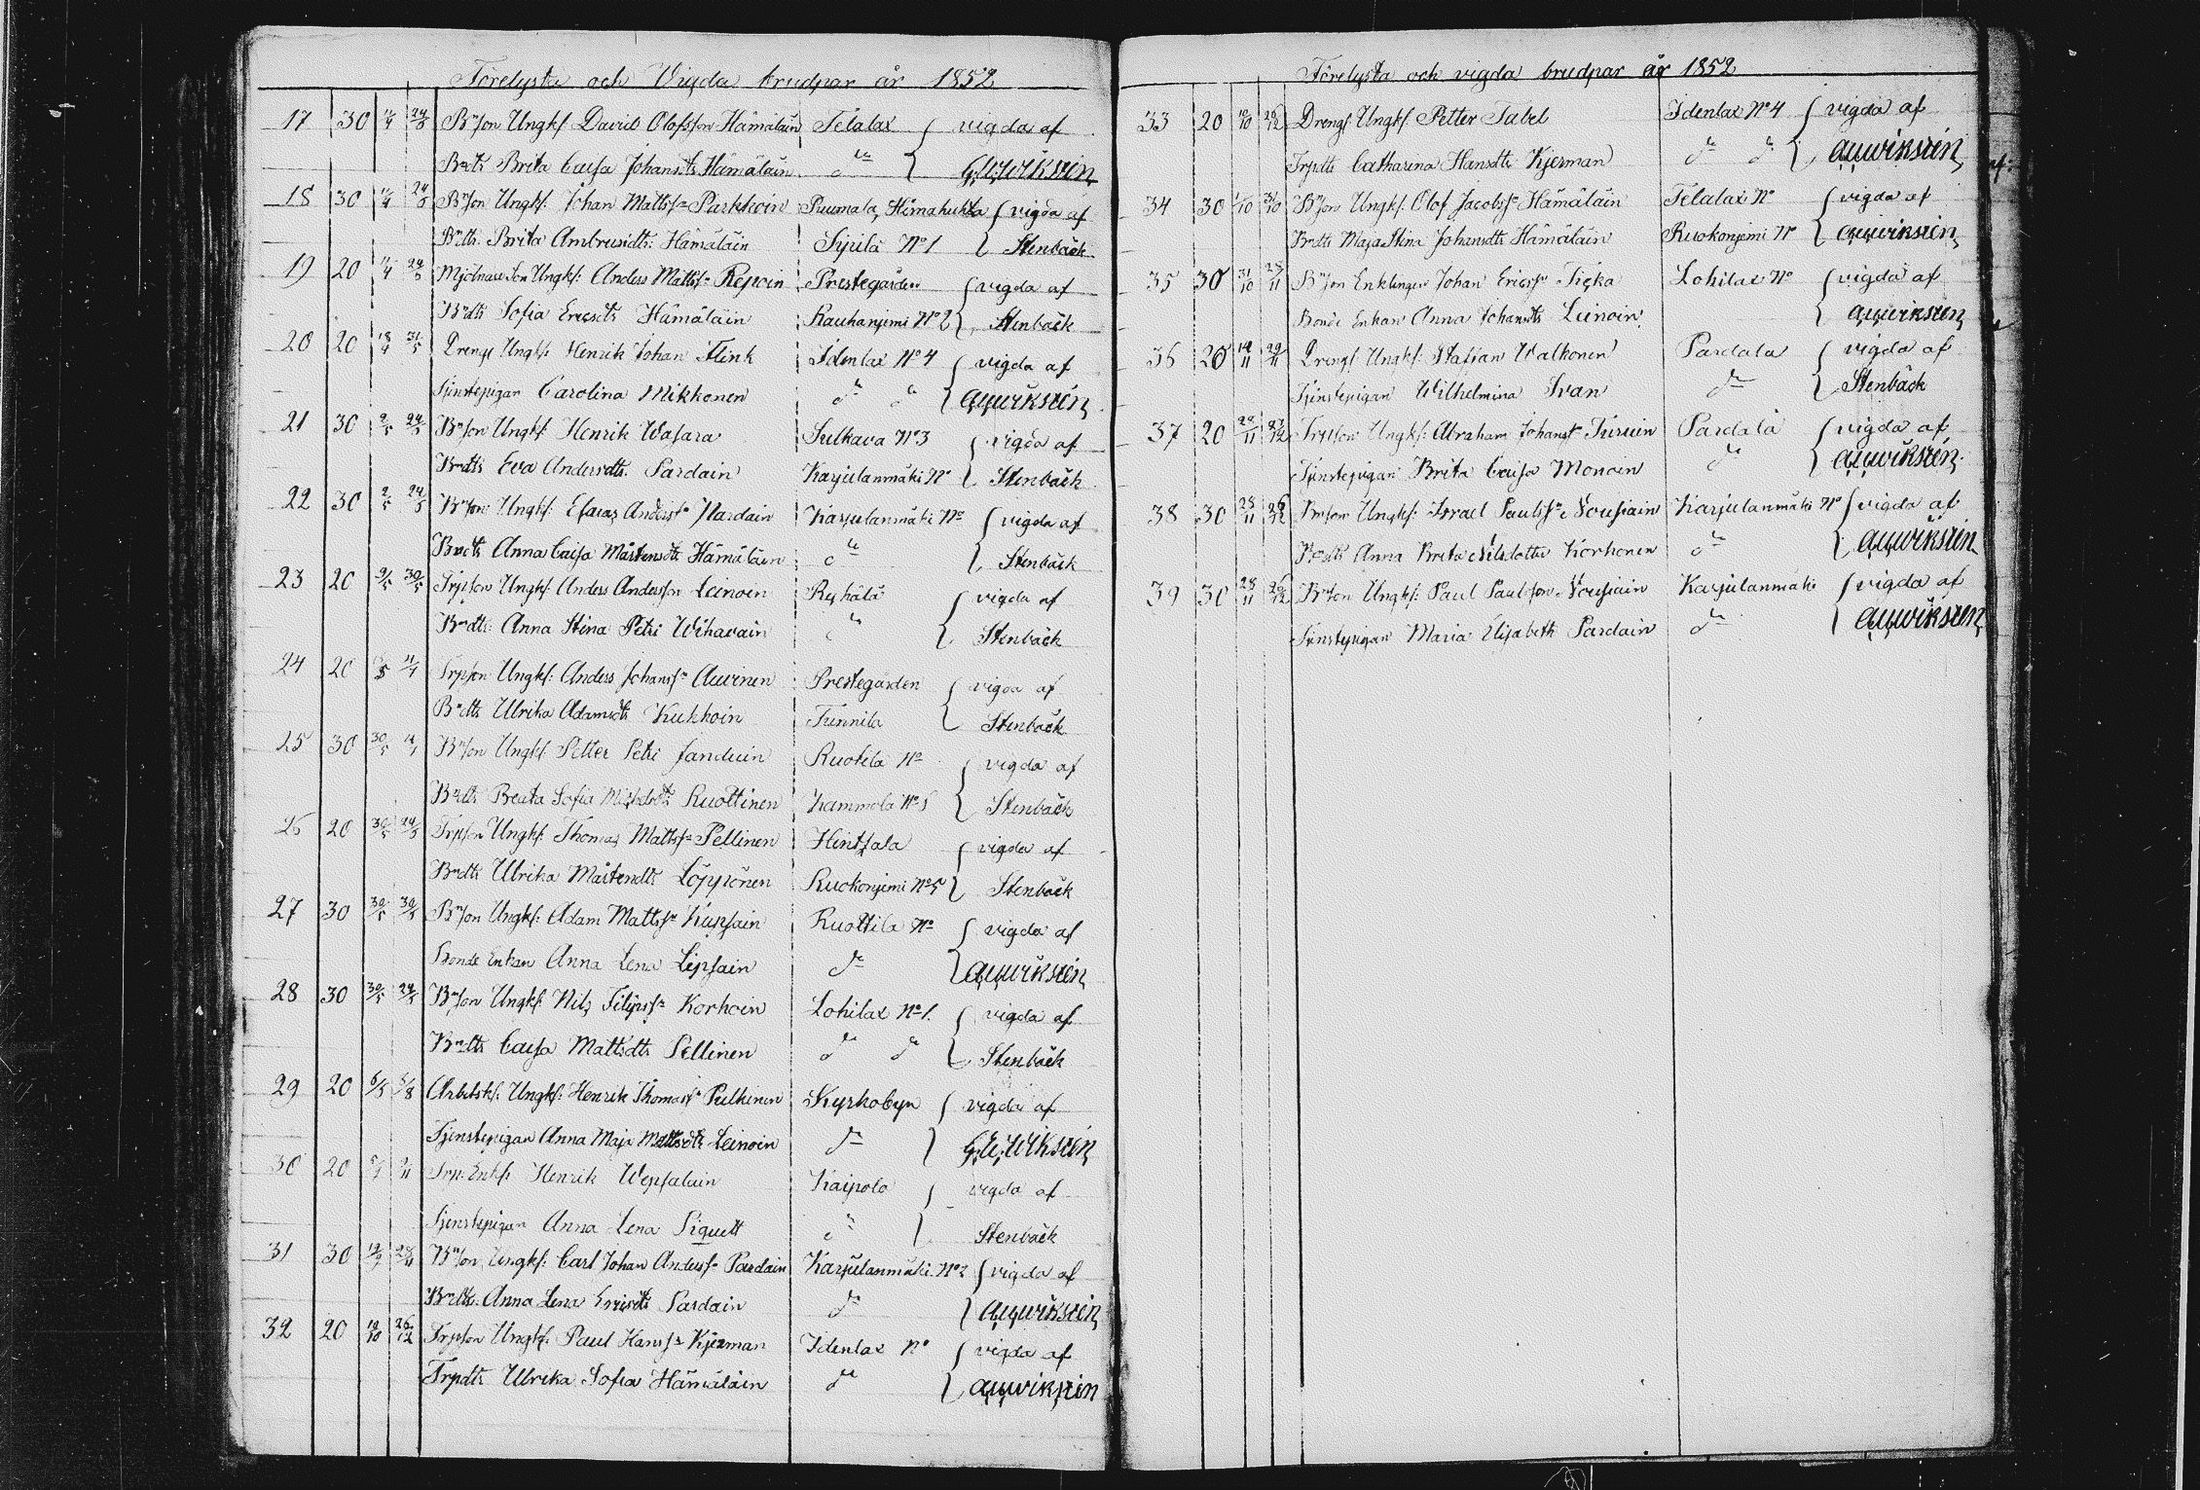 Förelysta och Vigda brudpar år 1852
17 30 11/4 24/5 Bson Ungk: David Olofsson Hämäläin Telalax vigda af
Bdtr Brita Caisa Johansdtr Hämäläin do
18 30 11/4 24/5 Bson Ungk: Johan Mattss Parkkoin Puumala, Himahuhta vigda af
Bdtr Brita Ambrusdtr: Hämäläin Sipilä No 1 Stenbäck
19 20 11/4 24/5 Mjölnare Son Ungk: Anders Mattss Repoin Prestegården vigda af
Bdtr Sofia Ericsdtr Hämäläin Rauhanjemi No 2 Stenbäck
20 20 18/4 31/5 Dreng Ungk: Henrik Johan Flink Idenlax No 4 vigda af
Tjenstepigan Carolina Mikkonen do do
21 30 2/5 24/5 Bson Ungk: Henrik Wasara Sulkava No 3 vigda af
Bdtr Eva Andersdtr. Pardain Karjulanmäki No Stenbäck
22 30 2/5 24/5 Bson Ungk: Esaias Anderss Pardain Karjulanmäki No vigda af
Bdtr Anna Caisa Mårtensdtr Hämäläin do Stenbäck
23 20 9/5 30/5 Trpson Ungk: Anders Andersson Leinoin Ryhälä vigda af
Bdtr: Anna Stina Petri Wihavain do Stenbäck
24 20 Trpson Ungk: Anders Johanss Auvinen Prestegården vigda af
Bdtr Ulrika Adamsdtr Kukkoin Tunnila Stenbäck
25 30 30/5 Bson Ungk: Petter Petri Janduin Ruokila No vigda af
Bdtr Beata Sofia Ruottinen Kammola No 5 Stenbäck
26 20 30/5 24/5 Trpson Ungk: Thomas Mattss Pellinen Hintsala vigda af
Bdtr Ulrika Mårtendtr Löppönen Ruokonjemi No 5 Stenbäck
27 30 30/5 30/5 Bson Ungk: Adam Mattss Kupsain Ruottila No vigda af
Bonde Enkan Anna Lena Lipsain do
28 30 30/5 24/5 Bson Ungk: Nils Filipss Korhoin Lohilax No 1. vigda af
Bdtr Caisa Mattsdtr Pellinen do do Stenbäck
29 20 6/5 5/8 Arbetsk: Ungk: Henrik Thomass Pulkinen Kyrkobyn vigda af
Tjenstepigan Anna Maja Mattsdtr Leinoin do
30 20 Trp: Enk: Henrik Wepsäläin Kaipola vigda af
Tjenstepigan Anna Lena Piquett do Stenbäck
31 30 12/9 28/11 Bson Ungk: Carl Johan Anderss Pardain Karjulanmäki No 2 vigda af
Bdtr: Anna Lena Ericsdtr Pardain do
32 20 10/10 26/12 Trpson Ungk: Paul Hanss Kjerman Idenlax No vigda af
Trpdtr Ulrika Sofia Hämäläin do
Förelysta och vigda brudpar år 1852
33 20 10/10 26/12 Dreng Ungk: Petter Tabel Idenlax No 4 vigda af
Trpdtr Catharina Hansdtr Kjerman do do
34 30 1/10 31/10 Bson Ungk: Olof Jacobss Hämäläin Telalax No vigda af
Bdtr Maja Stina Johansdtr Hämäläin Ruokonjemi No
35 30 31/10 28/11 Bson Enklingen Johan Ericss Lohilax No vigda af
Bonde Enkan Anna Johansdtr Leinoin
36 20 14/11 29/11 Dreng Ungk: Staffan Walkonen Pardala vigda af
Tjenstepigan Wilhelmina Ivan do Stenbäck
37 20 27/12 Trpson Ungk: Abraham Johanss Turuin Pardala vigda af
Tjenstepigan Brita Caisa Monoin do
38 30 28/11 26/12 Bnson Ungk: Israel Paulss Nousiain Karjulanmäki No vigda af
Bdtr Anna Brita Nilsdotter Korhonen do
39 30 28/11 26/12 Bson Ungk: Paul Paulsson Nousiain Karjulanmäki vigda af
Tjenstepigan Maria Elisabeth Pardain do